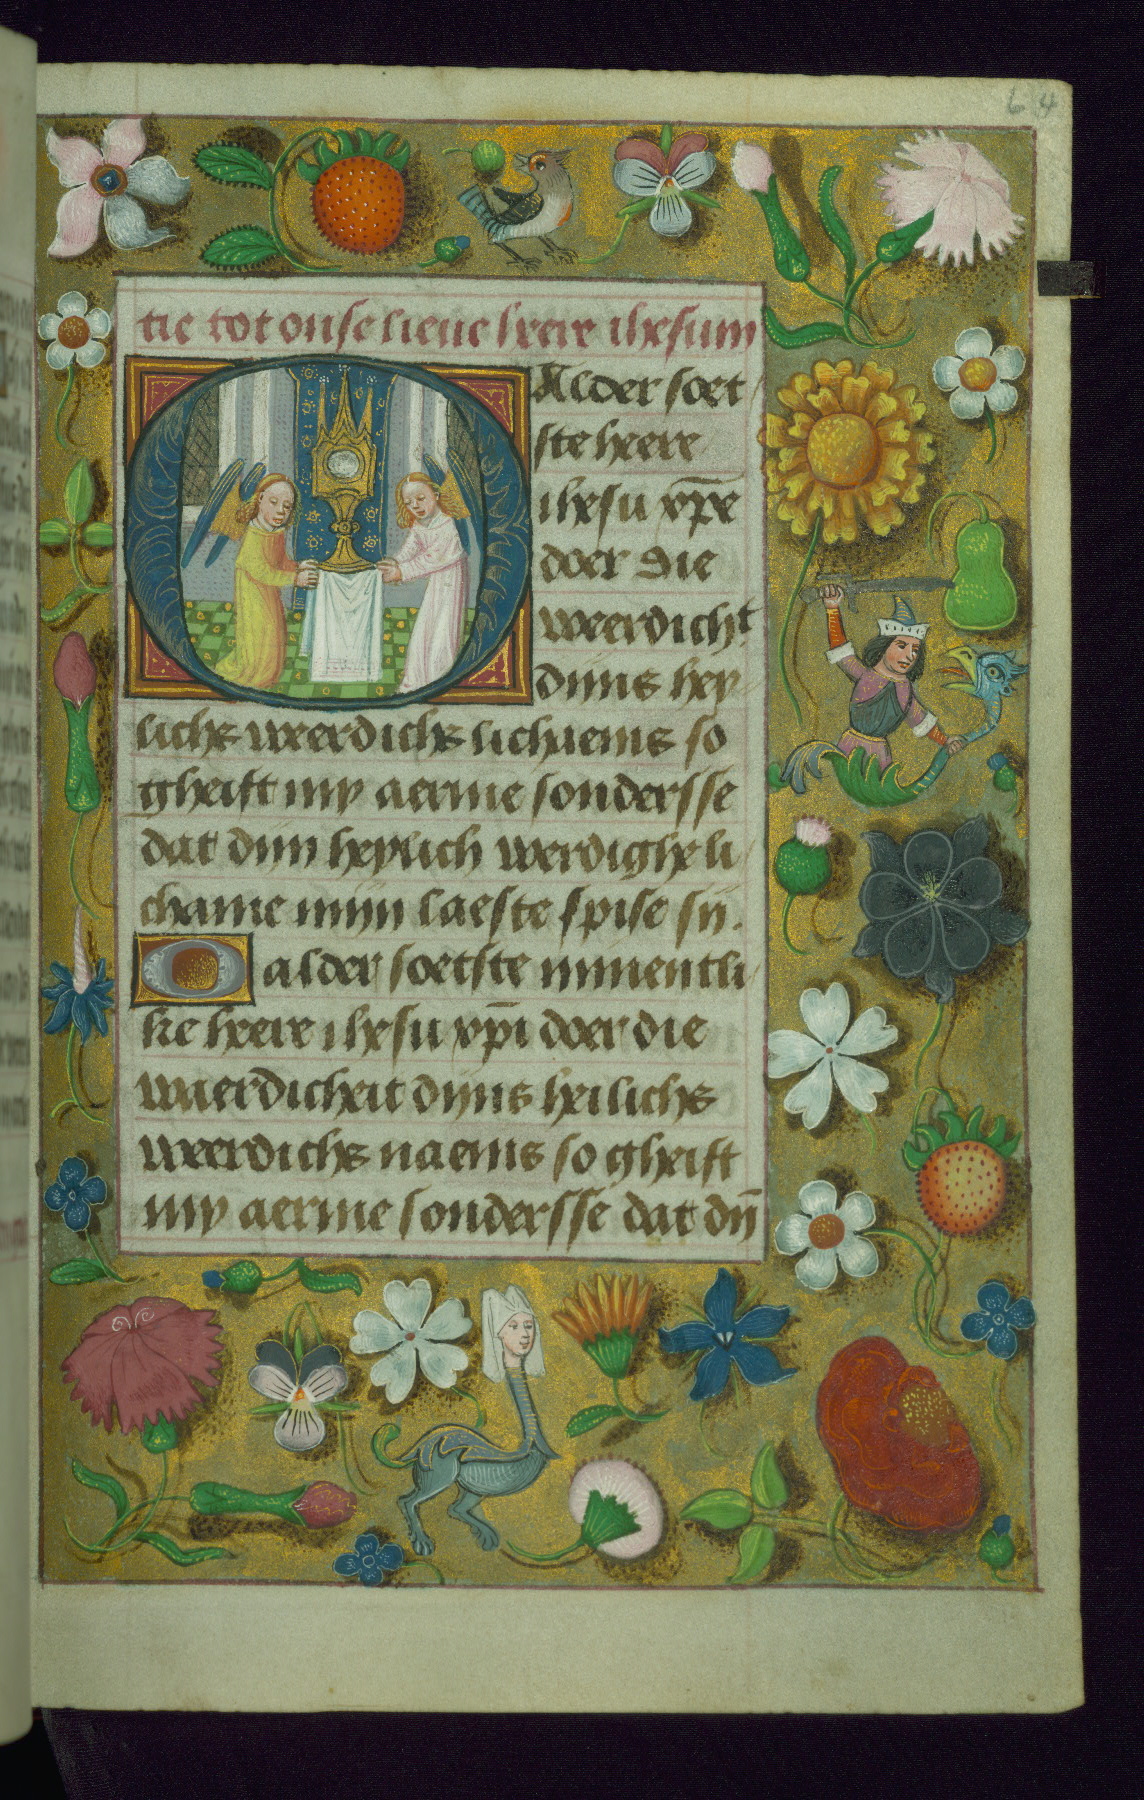 64
tie tot onse lieue heere ihesum
O Alder soet
ste heere
ihesu xp̄e
doer die
weerdicht
dijns hey
lichs weerdichs lichaems so
gheift my aerme sondersse
dat dijn heylich werdighe li
chame mijn laeste spise sij̄.
O alder soetste minentli
ke heere ihesu xp̄i doer die
waerdicheit dijns heilichs
weerdichs naems so gheift
my aerme sondersse dat dij̄